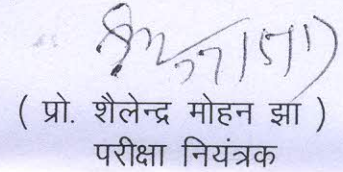 ( प्रो. शैलेन्द्र मोहन झा )
परीक्षा नियंत्रक